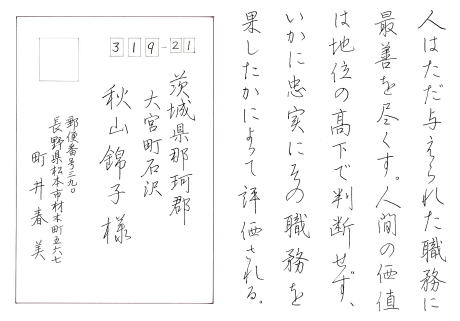 人はただ与えられた職務に
最善を尽くす。人間の価値
は地位の高下で判断せず、
いかに忠実にその職務を
果したかによって評価される。
319-21
茨城県那珂郡
大宮町石沢
秋山錦子様
郵便番号三九〇
長野県松本市材木町五六七
町井春美